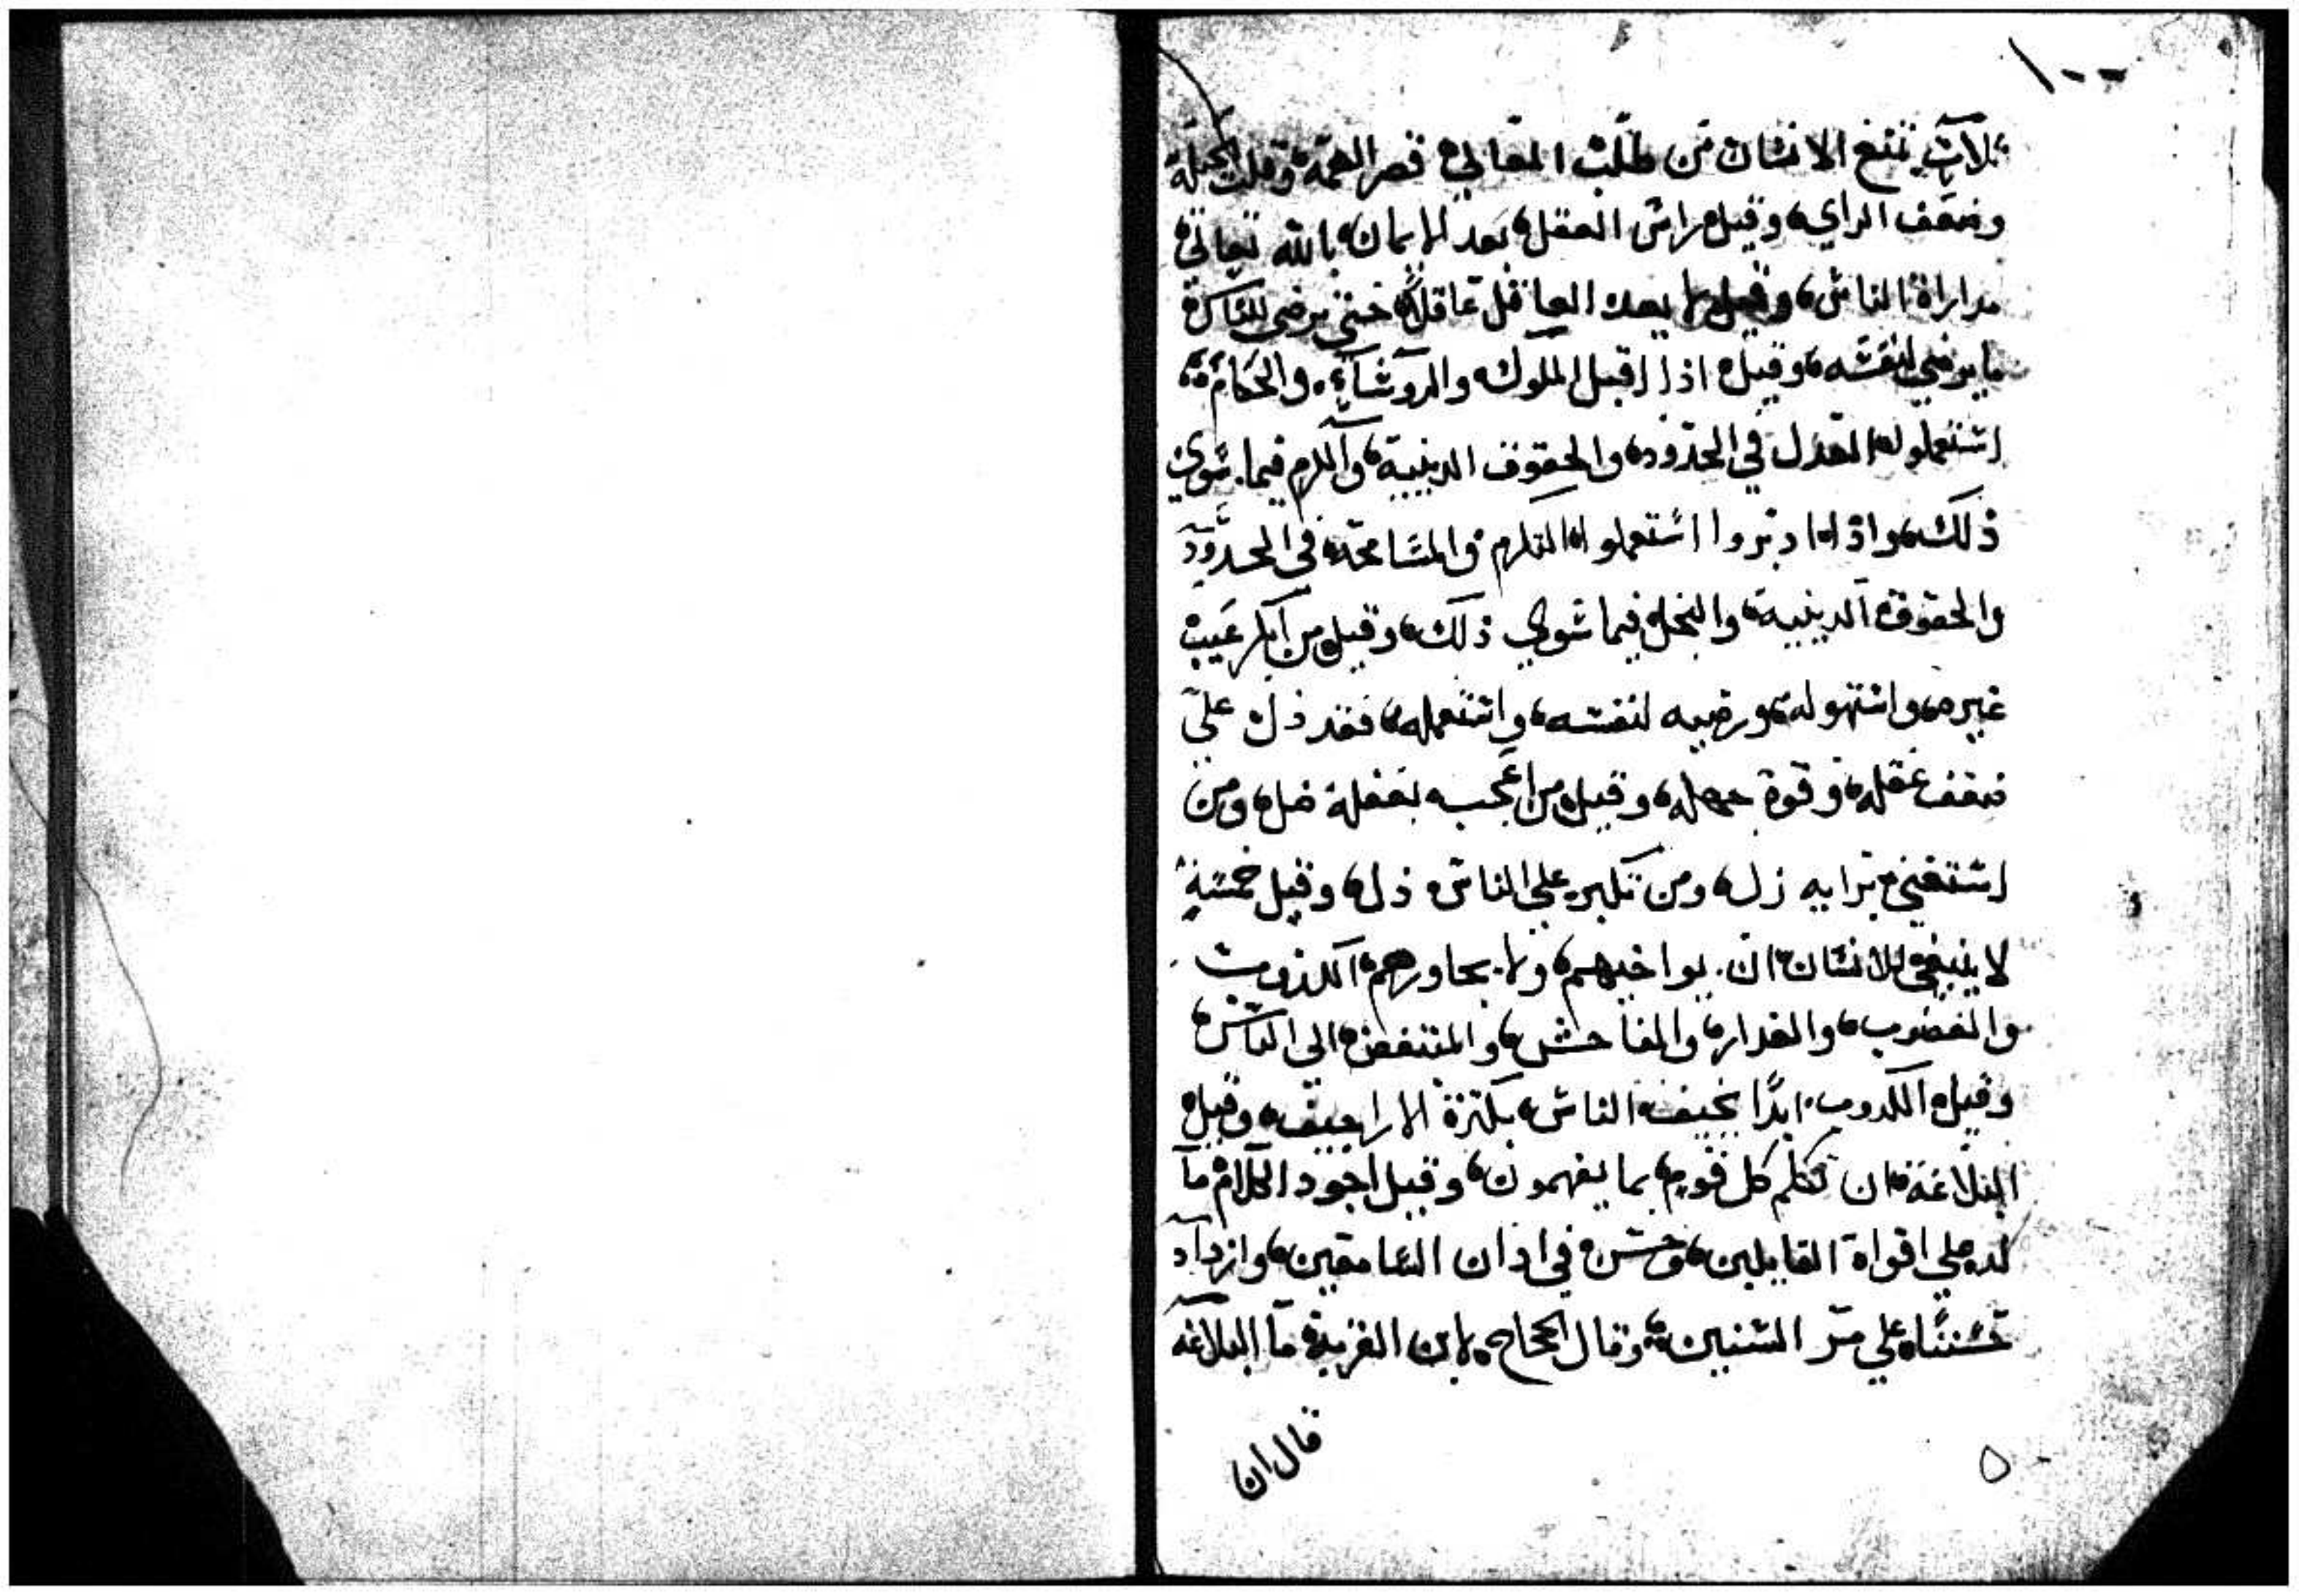 ١٠٠
ثلاث تمنع الانسان من طلب المعالي قصر الهمة وقلت الحيلة
وضعف الراي، وقيل راس العقل بعد الايمان بالله تعالى
مداراة الناس، وقيل لا يعد العاقل عاقلاً حتى يرضى للناس
ما يرضي لنفسه، وقيل اذا اقبل الملوك والروساء والحكام،
استعملوا العدل في الحدود، والحقوق الدينية، والكرم فيما سوي
ذلك، واذا ادبروا استعملوا التكرم والمسامحة في الحدود
والحقوق الدينية، والبخل فيما سوي ذلك، وقيل من عيب
غيره، ورضيه لنفسه، واستعمله، فقد دل علي
ضعف عقله، وقوة جهله، وقيل من اعجب بعقله ضل، ومن
استغني برايه زل، ومن تكبر علي الناس ذل، وقيل خمسة
لا ينبغي للانسان ان يواخيهم، ولا يجاورهم، الكذوب
والغضوب، والغدار، والفاحش، الي الناس،
وقيل الكدوب ابدًا يخيف الناس، بكثرة الاراجيف، وقيل
البلاغة، ان تكلم كل قوم، بما يفهمون، وقيل اجود الكلام ما
لد علي افواة القايلين، وحسن في اذان السامعين، وازداد
حسنًا، علي مر السنين، وقال الحجاج لابن القرية ما البلاغه
قال ان
٥